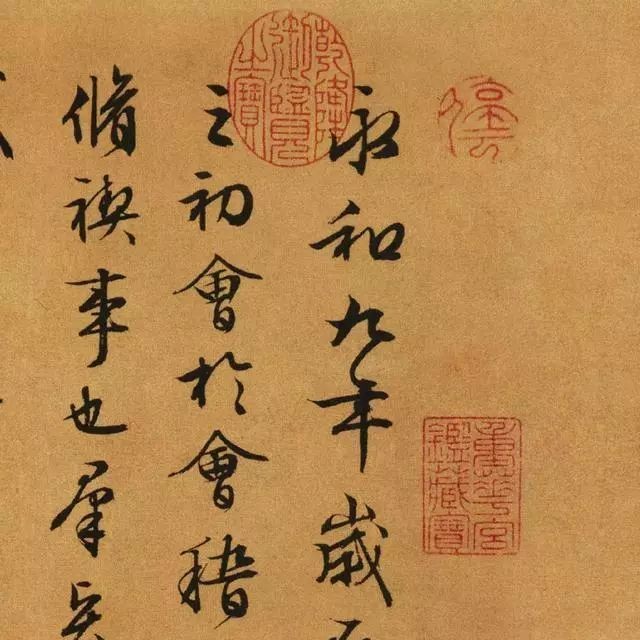 永和九年歲
之初會於會稽
脩禊事也羣
乾隆御覽之寶
重華宮鑑藏寶